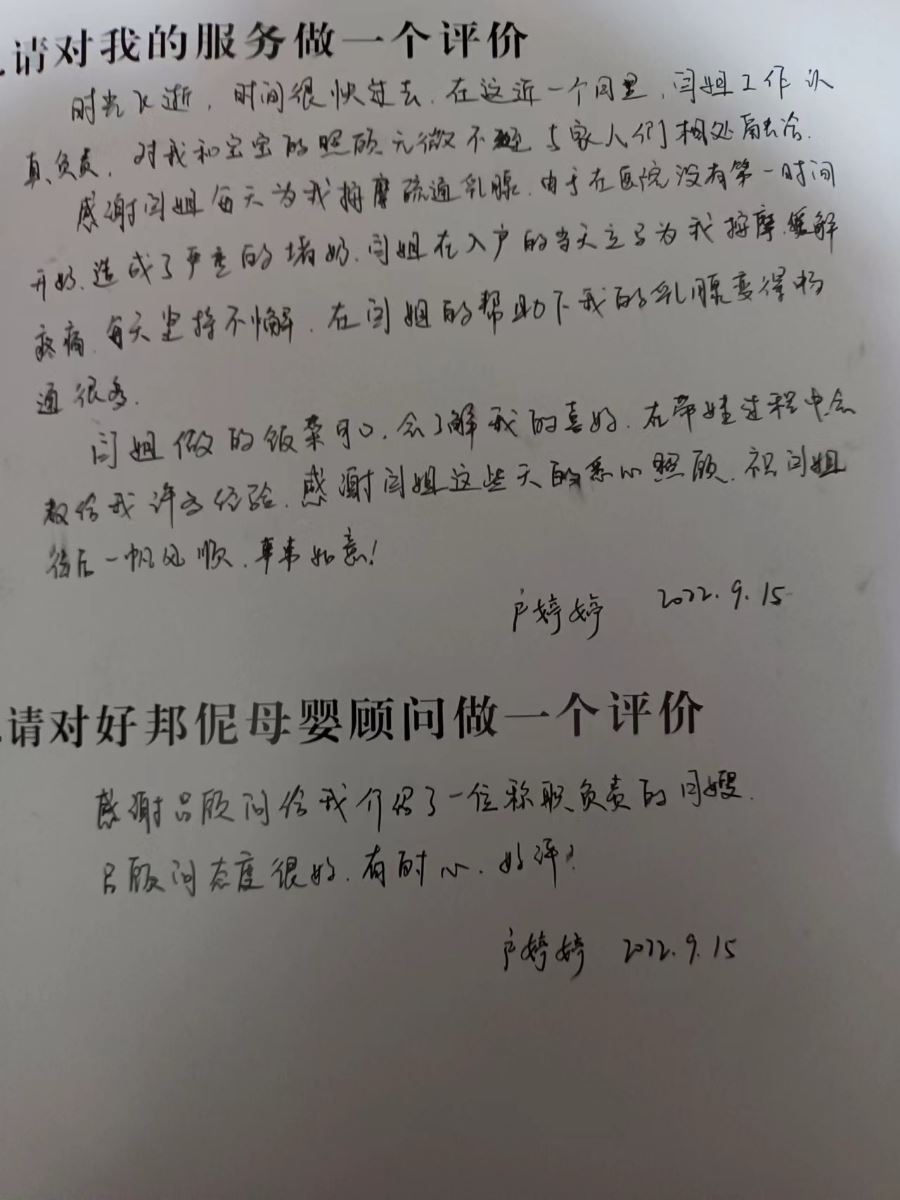 .请对我的服务做一个评价
时光飞逝,时间很快过去.在这近一个月里,闫姐工作认
真、负责,对我和宝宝的照顾无微不至,与家人们相处融洽.
感谢闫姐每天为我按摩疏通乳腺.由于在医院没有第一时间
开奶.造成了严重的堵奶.闫姐在入户的当天立马为我按摩.缓解
疼痛.每天坚持不懈.在闫姐的帮助下我的乳腺变得畅
通很多.
闫姐做的饭菜可口,会了解我的喜好.在带娃过程中会
教给我许多经验.感谢闫姐这些天的悉心照顾.祝闫姐
往后一帆风顺.事事如意!
卢婷婷 2022.9.15
.请对好邦伲母婴顾问做一个评价
感谢吕顾问给我介绍了一位称职负责的月嫂.
吕顾问态度很好.有耐心.好评!
卢婷婷 2022.9.15